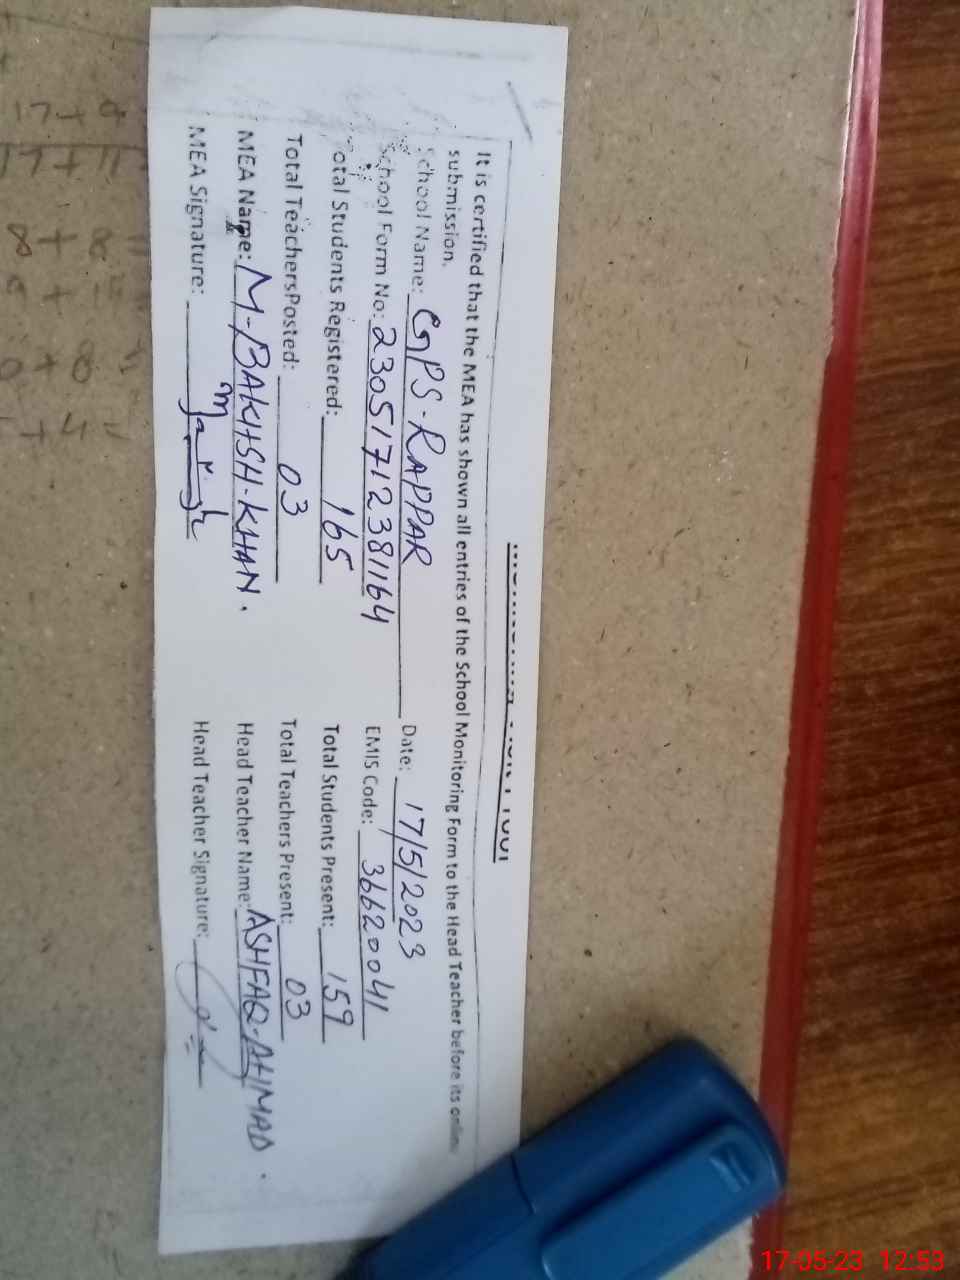 It is certified that the MEA has shown all entries of the School Monitoring Form to the Head Teacher before its online
submission.
School Name: GPS-RAPPAR Date: 17/5/2023
School Form No: 23051712381164 EMIS Code: 36620041
Total Students Registered: 165 Total Students Present: 159
Total TeachersPosted: 03 Total Teachers Present: 03
MEA Name: M-BAKHSH-KHAN. Head Teacher Name: ASHFAQ-AHMAD.
MEA Signature: Head Teacher Signature:
17+9
17+11
8+8=
9+1
0+8=
+4=
17-05-23 12:53